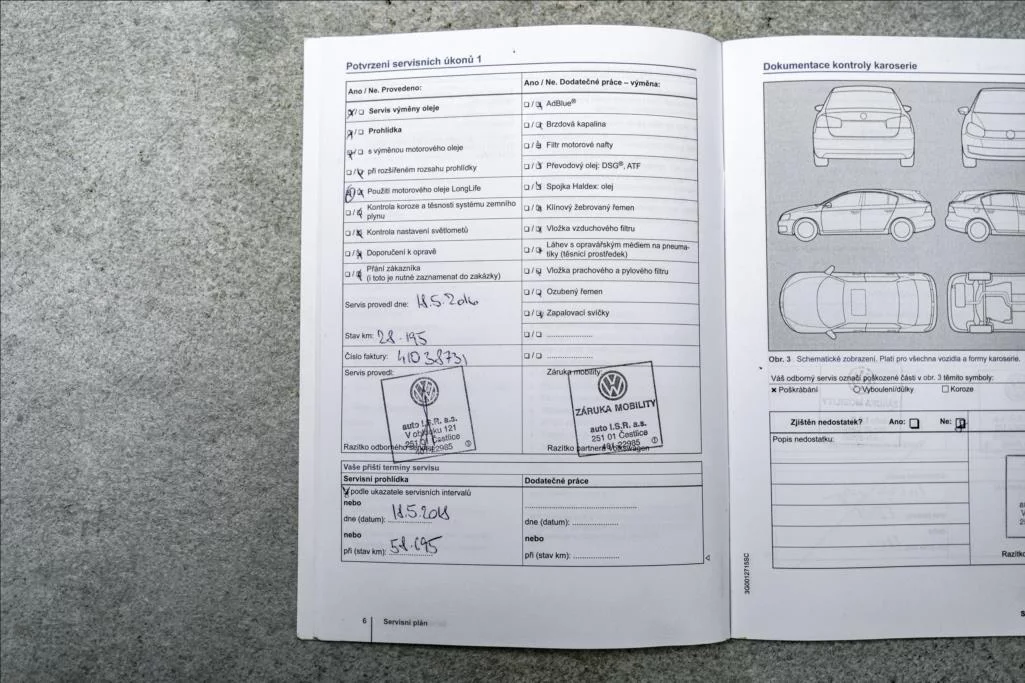 Potvrzení servisních úkonů 1
Ano / Ne. Provedeno:
Servis výměny oleje
Prohlídka
s výměnou motorového oleje
při rozšířeném rozsahu prohlídky
Použití motorového oleje LongLife
Kontrola koroze a těsnosti systému zemního
plynu
Kontrola nastavení světlometů
Doporučení k opravě
Přání zákazníka
(i toto je nutné zaznamenat do zakázky)
Servis provedl dne: 18.5.2016
Stav km: 28.195
Číslo faktury: 41038731
Servis provedl:
auto I.S.R. a.s.
V oblouku 121
251 01 Čestlice
Razítko odborného servisu
Ano / Ne. Dodatečné práce – výměna:
AdBlue®
Brzdová kapalina
Filtr motorové nafty
Převodový olej: DSG®, ATF
Spojka Haldex: olej
Klínový žebrovaný řemen
Vložka vzduchového filtru
Láhev s opravářským médiem na pneuma-
tiky (těsnicí prostředek)
Vložka prachového a pylového filtru
Ozubený řemen
Zapalovací svíčky
Záruka mobility:
ZÁRUKA MOBILITY
auto I.S.R. a.s.
251 01 Čestlice
Razítko partnera Volkswagen
Vaše příští termíny servisu
Servisní prohlídka
podle ukazatele servisních intervalů
nebo
dne (datum): 18.5.2018
nebo
při (stav km): 58.195
Dodatečné práce
dne (datum):
nebo
při (stav km):
6 Servisní plán
Dokumentace kontroly karoserie
Obr. 3 Schematické zobrazení. Platí pro všechna vozidla a formy karoserie.
Váš odborný servis označí poškozené části v obr. 3 těmito symboly:
Poškrábání Vyboulení/důlky Koroze
Zjištěn nedostatek? Ano: Ne:
Popis nedostatku:
3G0012715SC